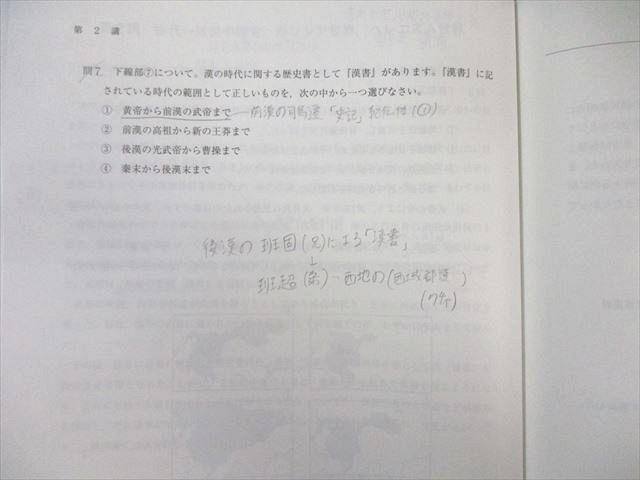 第 2 講
問7 下線部⑦について。漢の時代に関する歴史書として『漢書』があります。『漢書』に記
されている時代の範囲として正しいものを、次の中から一つ選びなさい。
① 黄帝から前漢の武帝まで 前漢の司馬遷「史記」紀伝体
② 前漢の高祖から新の王莽まで
③ 後漢の光武帝から曹操まで
④ 秦末から後漢末まで
後漢の班固(兄)による「漢書」
班超 西地の(西域都護)